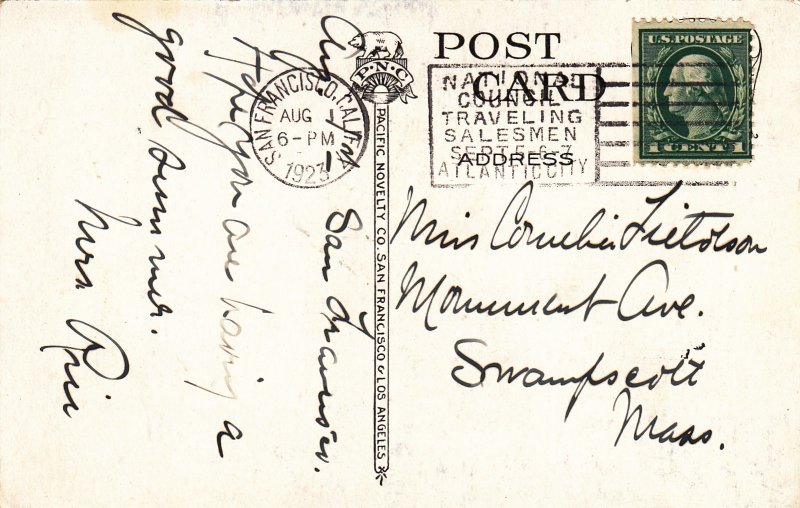 POST CARD
ADDRESS
U.S. POSTAGE
1 CENT 1
SAN FRANCISCO, CALIF.
AUG
6-PM
1923
NATIONAL
COUNCIL
TRAVELING
SALESMEN
SEPT 5-6-7
ATLANTIC CITY
P.N.C.
PACIFIC NOVELTY CO. SAN FRANCISCO & LOS ANGELES
San Francisco.
Hope you are having a
good summer.
Mrs
Miss Cornelia
Monument Ave.
Swampscott
Mass.